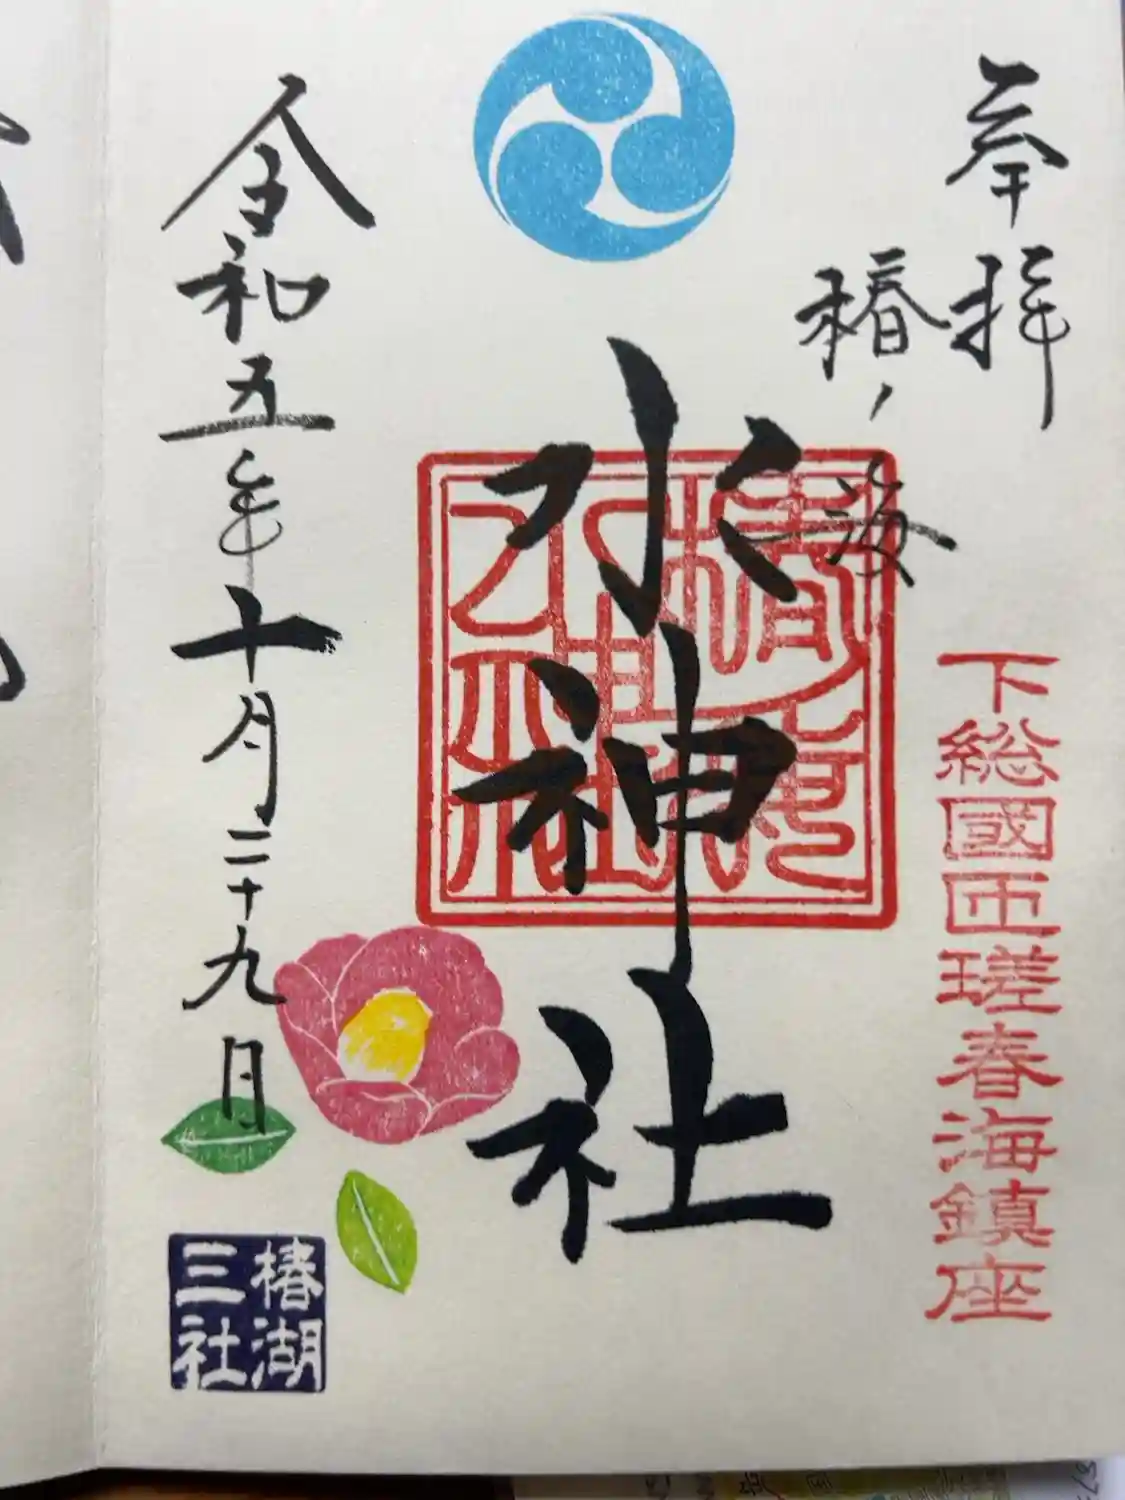 奉拝
下総國匝瑳春海鎮座
椿ノ海
水神社
令和五年十月二十九日
椿湖
三社